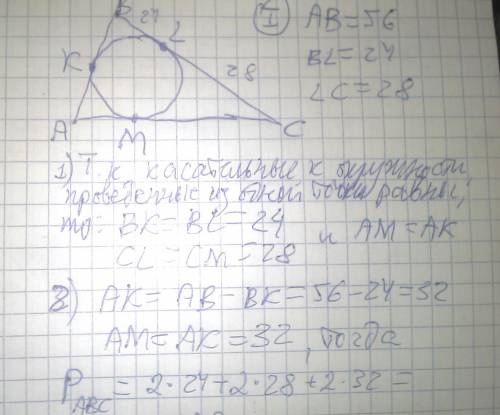 В
24
L
К
28
А
М
С
I
AB=56
BL=24
LC=28
1) Т.к касательные к окружности
проведенные из одной точки равны,
то: BK=BL=24
и AM=AK
CL=CM=28
2) AK=AB-BK=56-24=32
AM=AK=32, тогда
P_ABC=2·24+2·28+2·32=